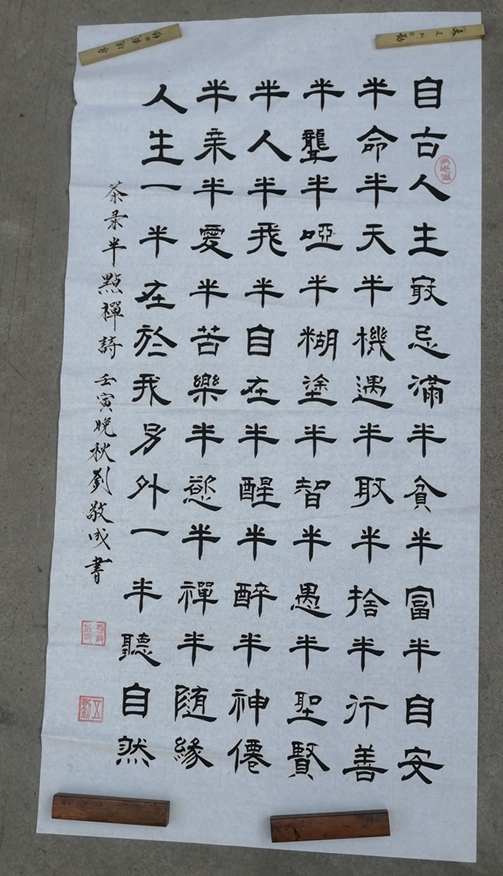 自古人生最忌滿半貧半富半自安
半命半天半機遇半取半捨半行善
半聾半啞半糊塗半智半愚半聖賢
半人半我半自在半醒半醉半神僊
半亲半愛半苦樂半慾半禪半隨緣
人生一半在於我另外一半聽自然
录半點禪詩 壬寅晚秋劉敬成書